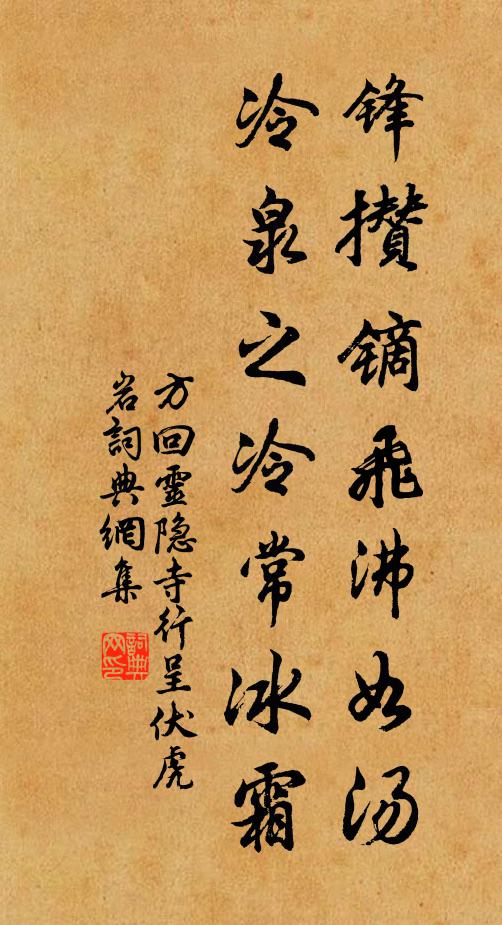 锋攒镝飞沸如汤
冷泉之冷常冰霜
方回靈隐寺行呈伏虎
岩詞典網集
詞典网印